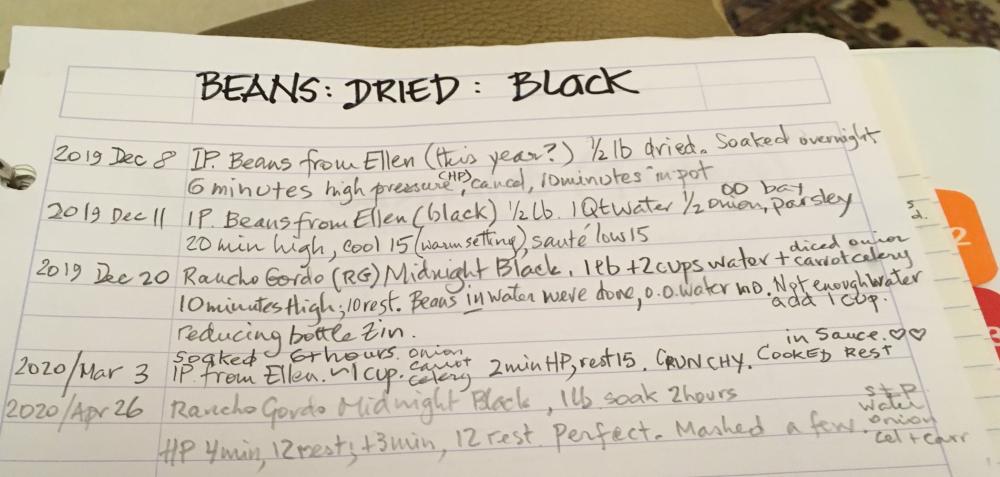 BEANS: DRIED: Black
2019 Dec 8 IP. Beans from Ellen (this year?) 1/2 lb dried. Soaked overnight
6 minutes high pressure (HP), cancel, 10 minutes in pot
2019 Dec 11 IP. Beans from Ellen (black) 1/2 lb. 1Qt water 1/2 onion, parsley
OO bay
20 min high, cool 15 (warm setting), sauté low 15
2019 Dec 20 Rancho Gordo (RG) Midnight Black, 1lb + 2 cups water + carrot celery
diced onion
10 minutes High; 10 rest. Beans in water were done, o.o. water no. Not enough water
add 1 cup.
reducing bottle Zin.
2020/Mar 3 IP from Ellen. ~1 cup. 2 min HP, rest 15. CRUNCHY. COOKED REST
soaked 6+ hours. onion
carrot
celery
in sauce. ♡♡
2020/Apr 26 Rancho Gordo Midnight Black, 1lb soak 2 hours
HP 4 min, 12 rest; +3 min, 12 rest Perfect. Mashed a few.
S+P
water
onion
cel + carr
s
d.
2